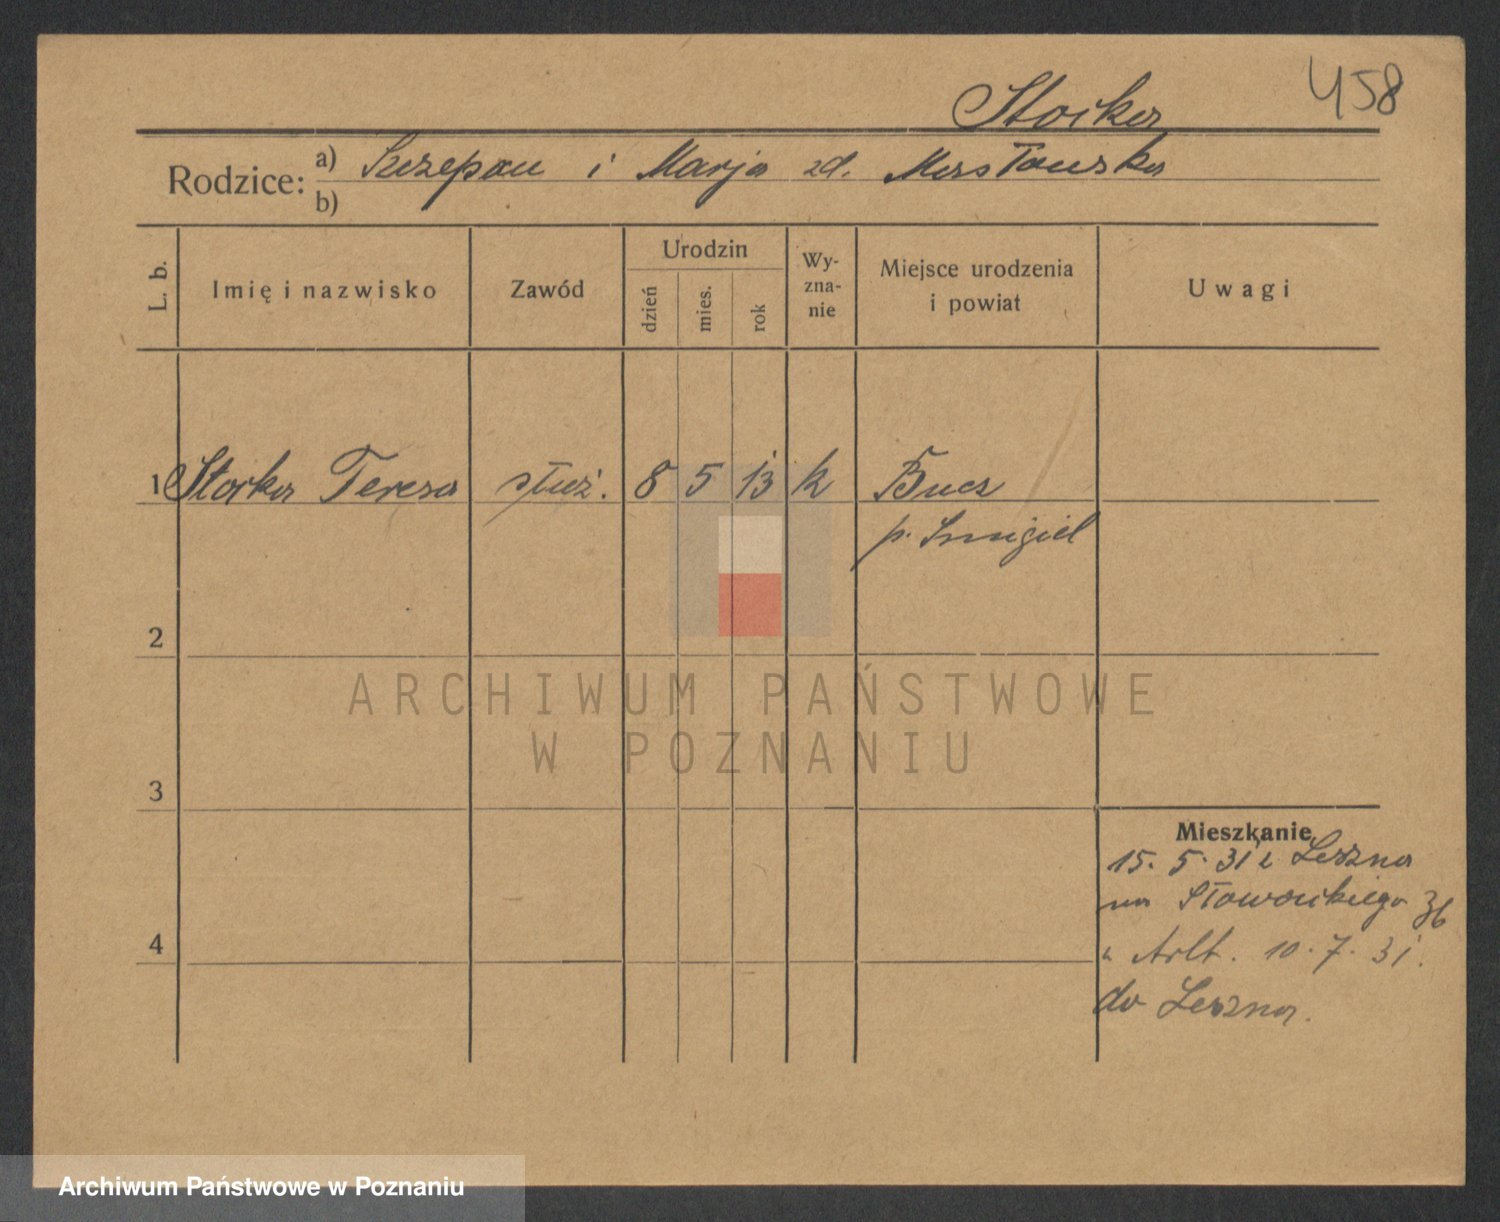 458
Stoika
Rodzice: a) Szczepan i Marja zd. Masłowska
b)
L. b.
Imię i nazwisko
Zawód
Urodzin
dzień
mies.
rok
Wy-
zna-
nie
Miejsce urodzenia
i powiat
Uwagi
1 Stoika Teresa służ. 8 5 13 k Bucz
p. Śmigiel
2
3
4
Mieszkanie
15. 5. 31 z Leszna
na Słowackiego 36
u Arlt. 10. 7. 31.
do Leszna.
ARCHIWUM PAŃSTWOWE
W POZNANIU
Archiwum Państwowe w Poznaniu